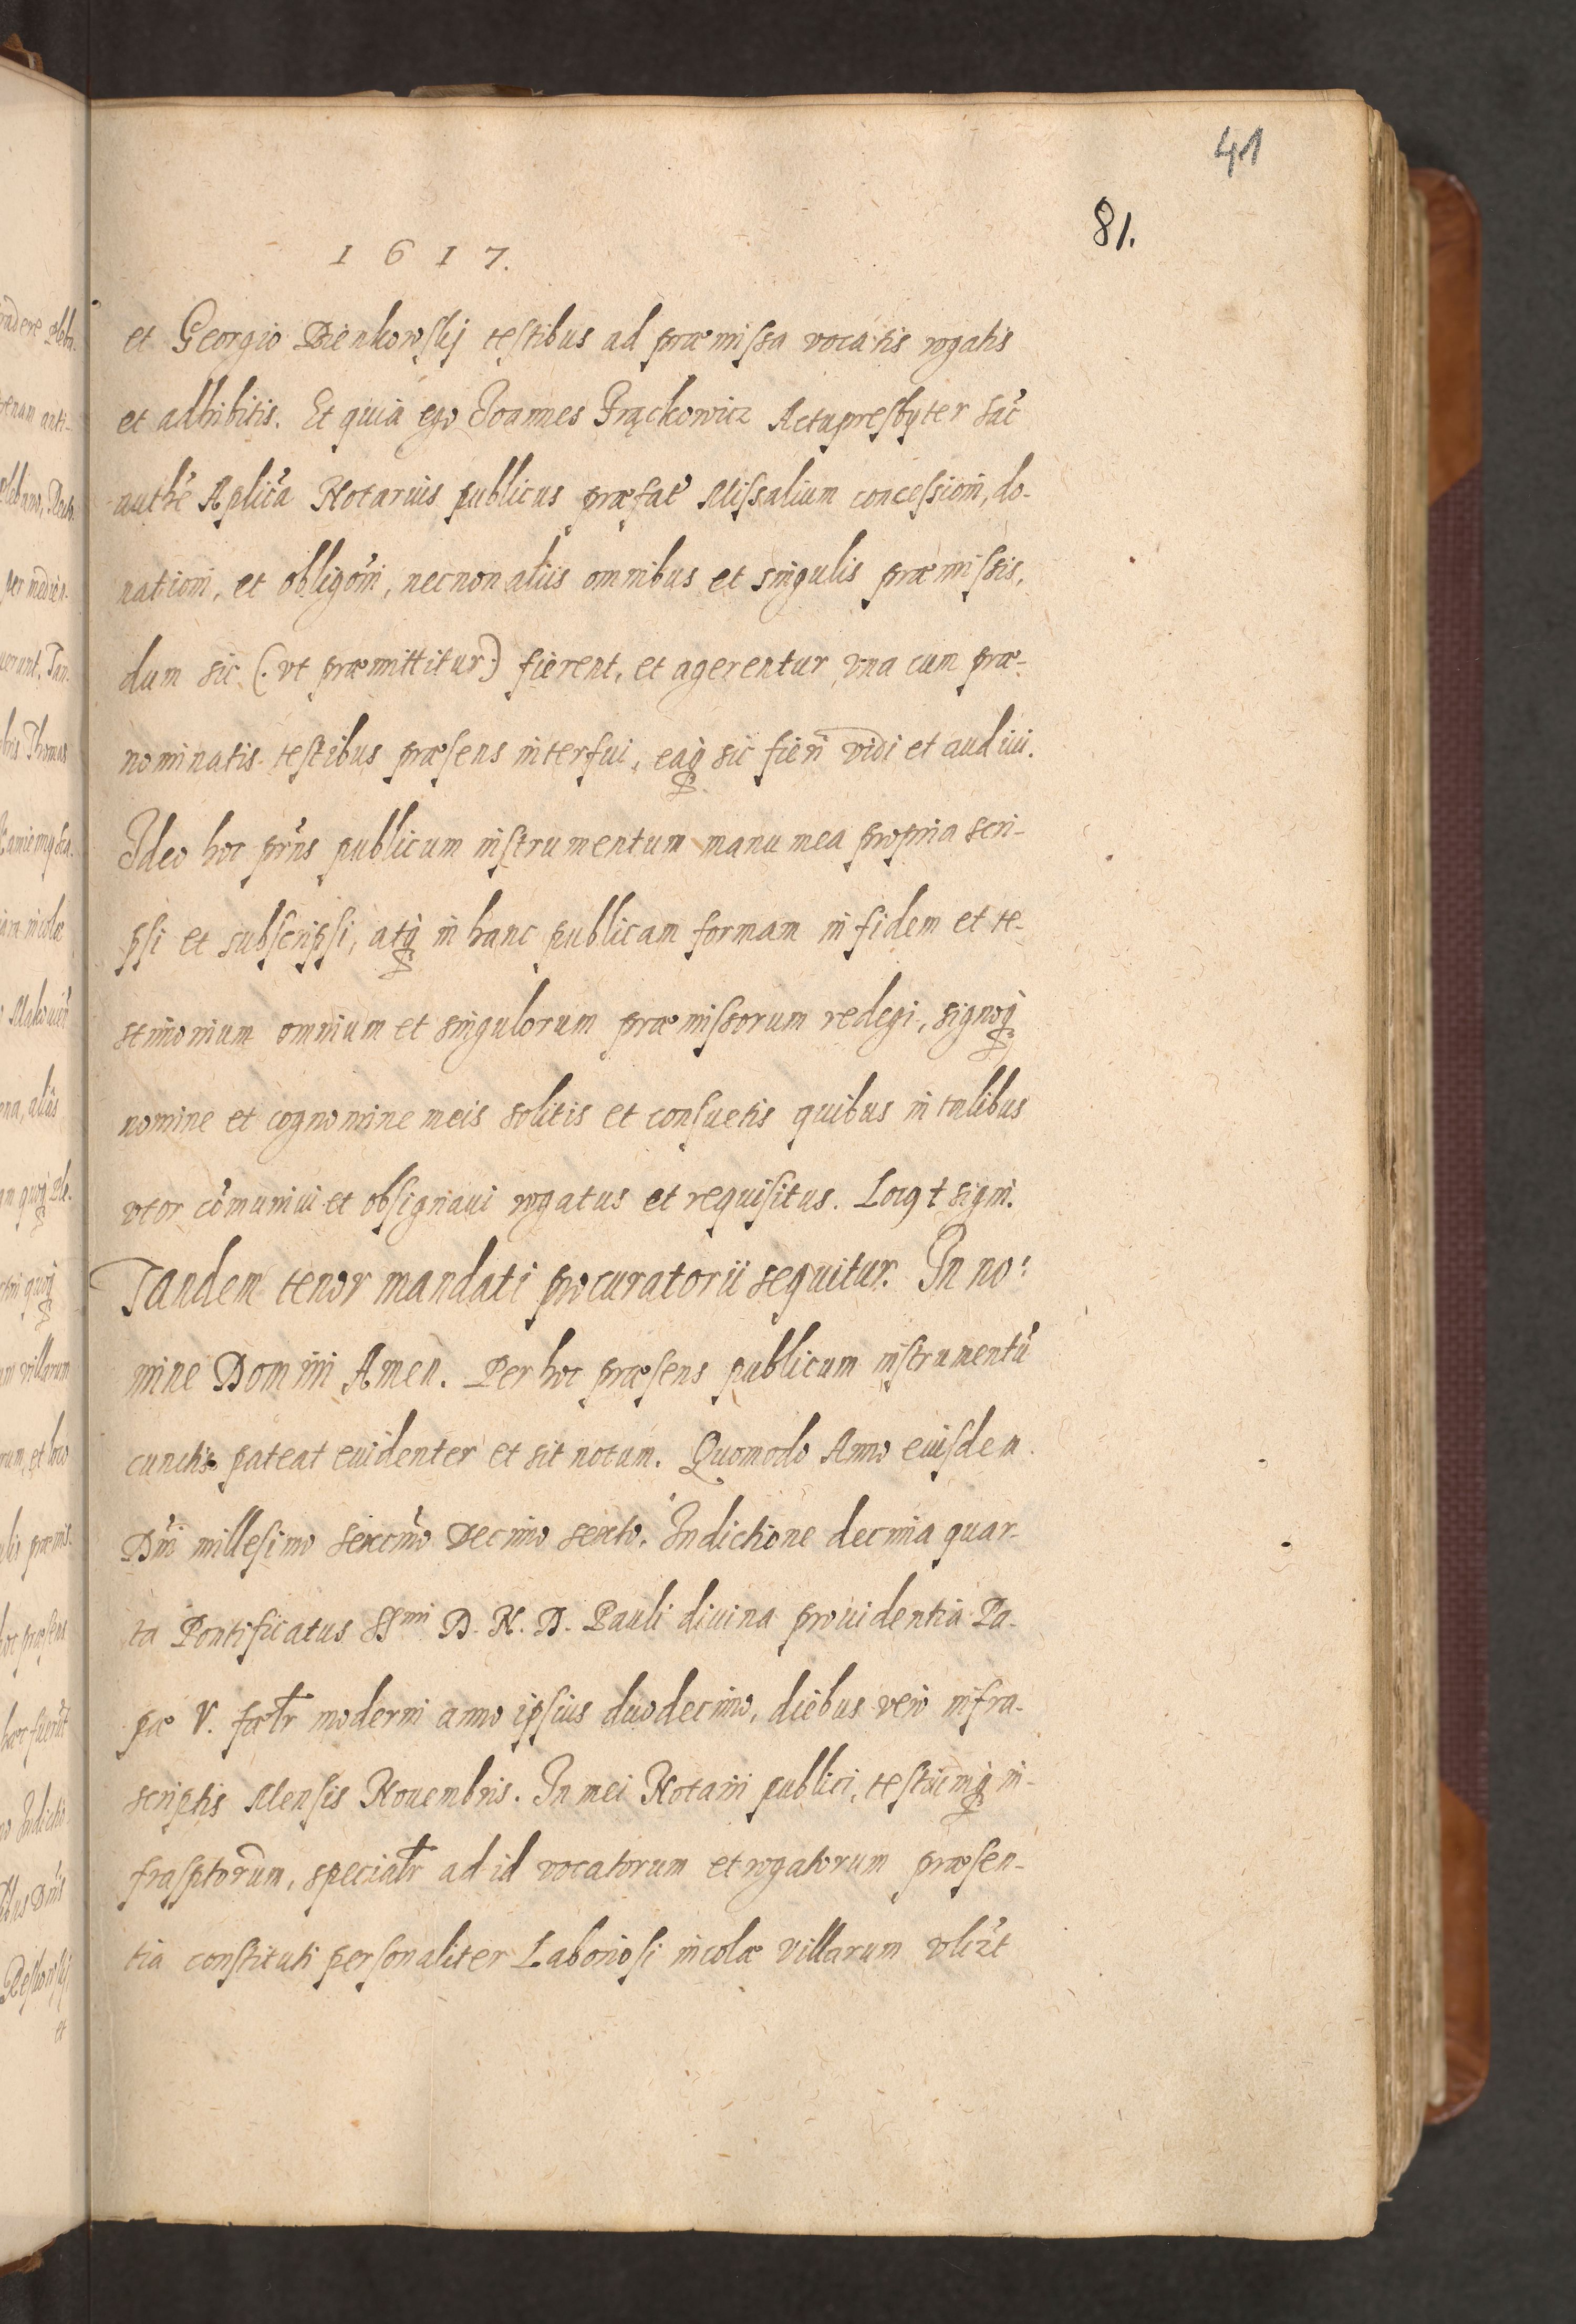 41
81.
1617.
et Georgio Bienkowskj testibus ad præmissa vocatis rogatis
et adhibitis. Et quia ego Joannes Frąckowicz Actupresbyter Sac̃
auth̃e Aplic̃a Notarius publicus præfat̃ Missalium concessioni, do-
nationi, et obligõni, necnon aliis omnibus et singulis præmissis,
dum sic (: vt præmittitur :) fierent, et agerentur vna cum præ-
nominatis testibus præsens interfui, eaq̃ sic fieri vidi et audiui.
Ideo hoc prñs publicum instrumentum manu mea propria scri-
psi et subscripsi, atq̃ in hanc publicam formam in fidem et te-
stimonium omnium et singulorum præmissorum redegi, signoq̃
nomine et cognomine meis solitis et consuetis quibus in talibus
vtor cõmuniui et obsignaui rogatus et requisitus. Locꝯ † signi.
Tandem tenor mandati procuratorii sequitur. In no:
mine Domini Amen. Per hoc præsens publicum instrumentũ
cunctis pateat euidenter et sit notum. Quomodo Anno eiusdem
Dñi millesimo sexcñmo decimo sexto. Indictione decima quar-
ta Pontificatus SSmi D. N. D. Pauli diuina prouidentia Pa-
pæ V. fœlr moderni anno ipsius duodecimo, diebus vero infra-
scriptis Mensis Nouembris. In mei Notarii publici, testiũmq̃ in-
frasptorum, specialr ad id vocatorum et rogatorum præsen-
tia constituti personaliter Laboriosi incolæ villarum vlizt